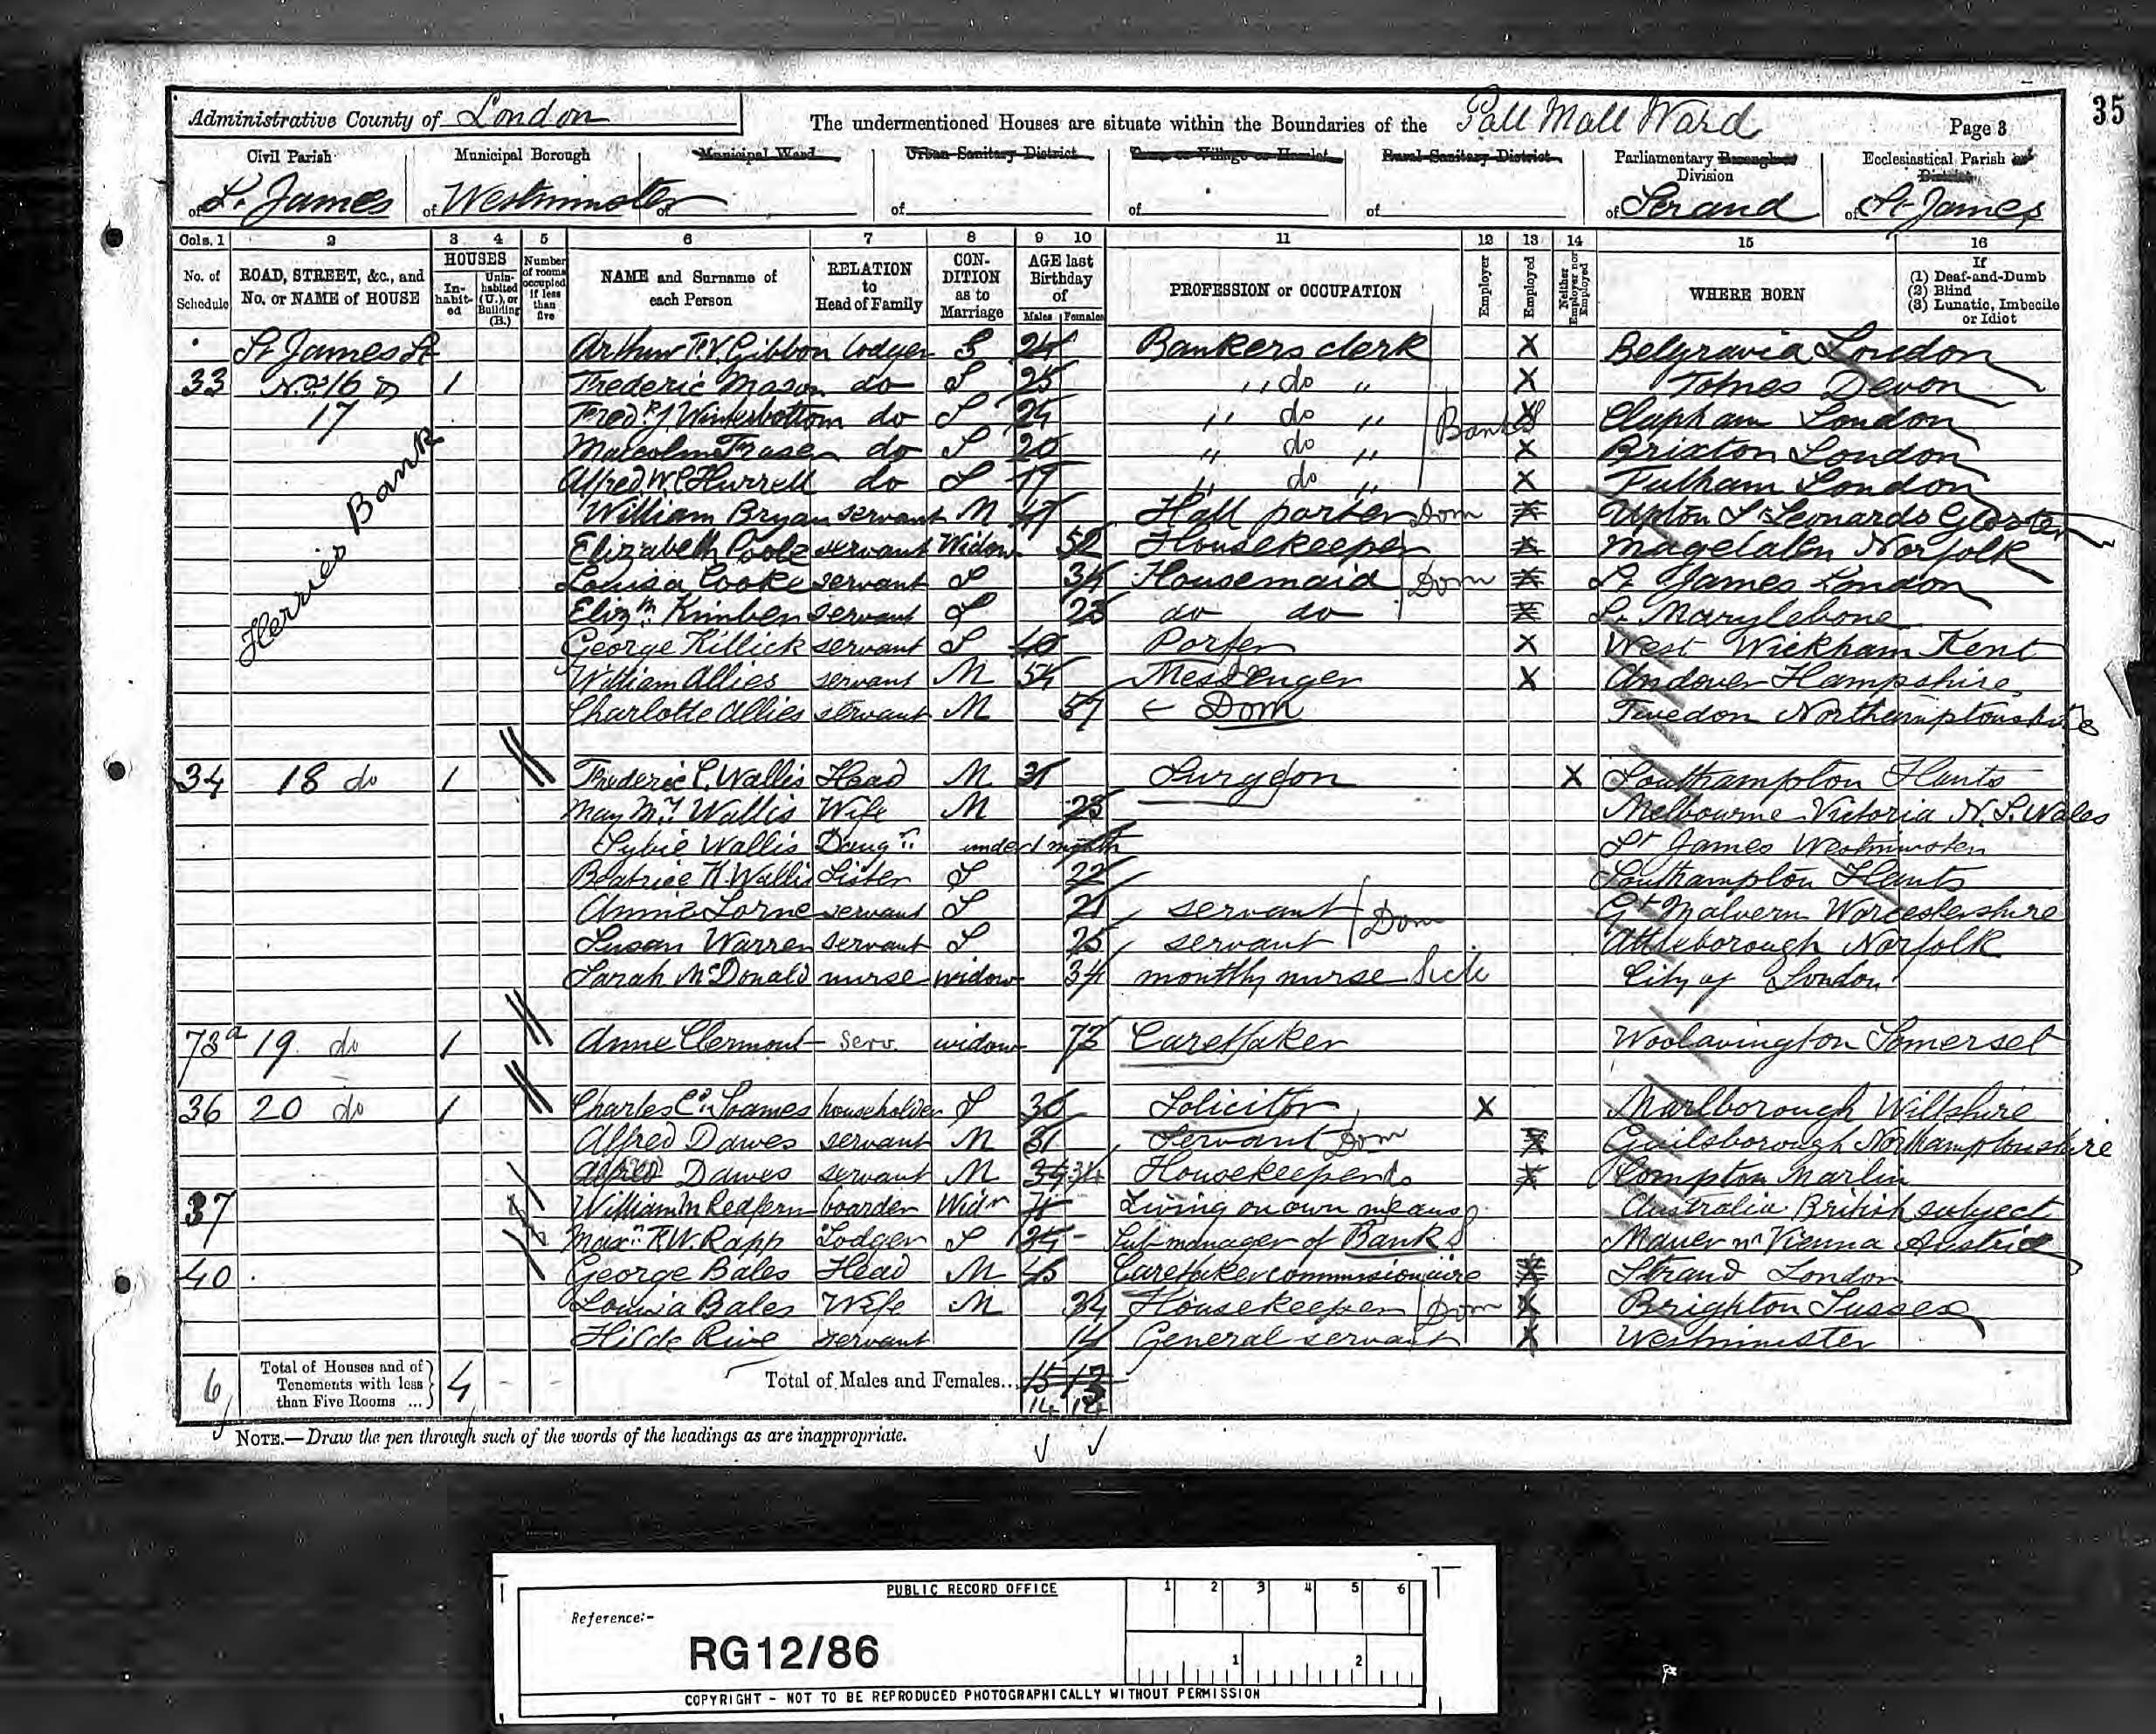 35
Administrative County of London The undermentioned Houses are situate within the Boundaries of the Pall Mall Ward Page 3
Civil Parish Municipal Borough Municipal Ward Urban Sanitary District Town or Village or Hamlet Rural Sanitary District Parliamentary Borough or Division Ecclesiastical Parish or District
of St. James of Westminster of of of of of Strand of St James
Cols. 1 2 3 4 5 6 7 8 9 10 11 12 13 14 15 16
No. of Schedule ROAD, STREET, &c., and No. or NAME of HOUSE HOUSES In-habit-ed Unin-habited (U.), or Building (B.) Number of rooms occupied if less than five NAME and Surname of each Person RELATION to Head of Family CON-DITION as to Marriage AGE last Birthday of Males Females PROFESSION or OCCUPATION Employer Employed Neither Employer nor Employed WHERE BORN If (1) Deaf-and-Dumb (2) Blind (3) Lunatic, Imbecile or Idiot
St James St Arthur T.V. Gibbon lodger S 24 Bankers clerk X Belgravia London
33 No. 16 1 Frederic Mason do S 25 " do " X Totnes Devon
17 Fredk J Winterbottom do S 24 " do " Bank X Clapham London
Malcolm Fraser do S 20 " do " X Brixton London
Alfred W C Hurrell do S 17 " do " X Fulham London
Herries Bank
William Bryan servant M 47 Hall porter Dom X Upton St Leonards Gloster
Elizabeth Poole servant Widow 52 Housekeeper X Magdalen Norfolk
Louisa Cooke servant S 34 Housemaid Dom X St James London
Elizth Kimber servant S 23 do do X St Marylebone
George Killick servant S 40 Porter X West Wickham Kent
William Allies servant M 54 Messenger X Andover Hampshire
Charlotte Allies servant M 57 Dom Northamptonshire
34 18 do 1 Frederic C. Wallis Head M 31 Surgeon X Southampton Hants
May My Wallis Wife M 23 Melbourne Victoria N.S. Wales
Sybil Wallis Daugr under 1 month St James Westminster
Beatrice K. Wallis Sister S 22 Southampton Hants
Annie Lorne servant S 21 servant Dom Gt Malvern Worcestershire
Susan Warren servant S 25 servant Attleborough Norfolk
Sarah McDonald nurse widow 34 monthly nurse Sick City of London
73a 19 do 1 Anne Clermont Serv. widow 73 Caretaker Woolavington Somerset
36 20 do 1 Charles Soames householder S 30 Solicitor X Marlborough Wiltshire
Alfred Dawes servant M 31 Servant Dom X Guilsborough Northamptonshire
Dawes servant M 34 34 Housekeeper do X Compton Marlin
37 William M Redfern boarder Widr 71 Living on own means Australia British subject
Maxn R.W. Rapp Lodger S 34 Sub manager of Bank Mauer nr Vienna Austria
40 George Bales Head M 45 Caretaker commissionaire X Strand London
Louisa Bales Wife M 34 Housekeeper Dom X Brighton Sussex
Hilda Rive servant 14 General servant X Westminster
6 Total of Houses and of Tenements with less than Five Rooms ... 4 - - Total of Males and Females... 15 13
14 12
NOTE.—Draw the pen through such of the words of the headings as are inappropriate.
PUBLIC RECORD OFFICE
1 2 3 4 5 6
Reference:-
RG12/86
1 2
COPYRIGHT - NOT TO BE REPRODUCED PHOTOGRAPHICALLY WITHOUT PERMISSION